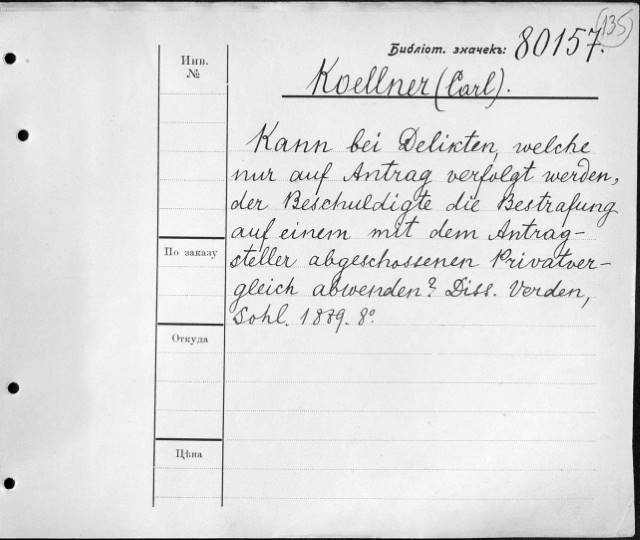 135
Библіот. значекъ: 80157.
Инв.
№
Koellner (Carl).
Kann bei Delikten, welche
nur auf Antrag verfolgt werden,
der Beschuldigte die Bestrafung
auf einem mit dem Antrag-
steller abgeschossenen Privatver-
gleich abwenden? Diss. Verden,
Sohl. 1889. 8°.
По заказу
Откуда
Цѣна